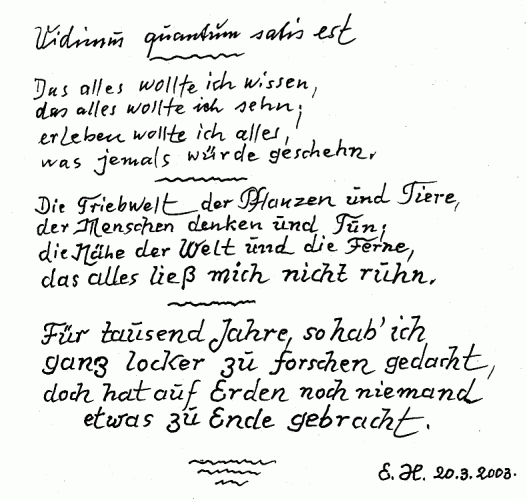 Vidimus quantum satis est
Das alles wollte ich wissen,
das alles wollte ich sehn;
erleben wollte ich alles,
was jemals würde geschehn.
Die Triebwelt der Pflanzen und Tiere,
der Menschen denken und Tun;
die Nähe der Welt und die Ferne,
das alles ließ mich nicht ruhn.
Für tausend Jahre, so hab' ich
ganz locker zu forschen gedacht,
doch hat auf Erden noch niemand
etwas zu Ende gebracht.
E. H. 20.3.2003.